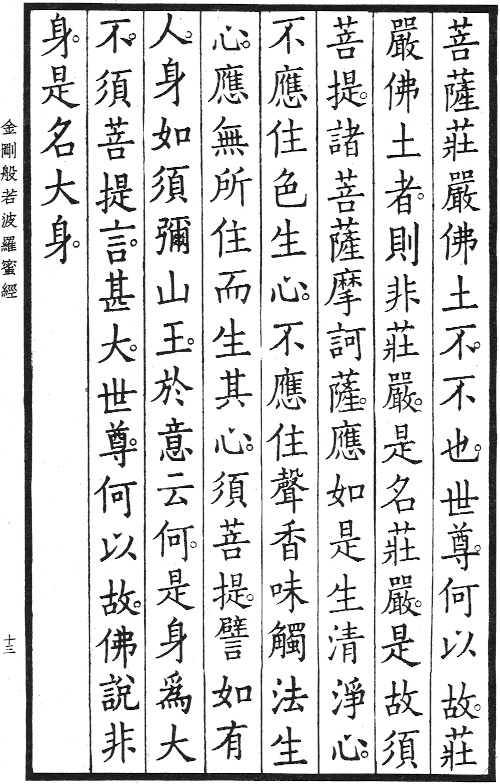 菩薩莊嚴佛土不。不也。世尊。何以故。莊
嚴佛土者。則非莊嚴。是名莊嚴。是故須
菩提。諸菩薩摩訶薩。應如是生清淨心。
不應住色生心。不應住聲香味觸法生
心。應無所住而生其心。須菩提。譬如有
人。身如須彌山王。於意云何。是身為大
不。須菩提言。甚大。世尊。何以故。佛說非
身。是名大身。
金剛般若波羅蜜經
十三